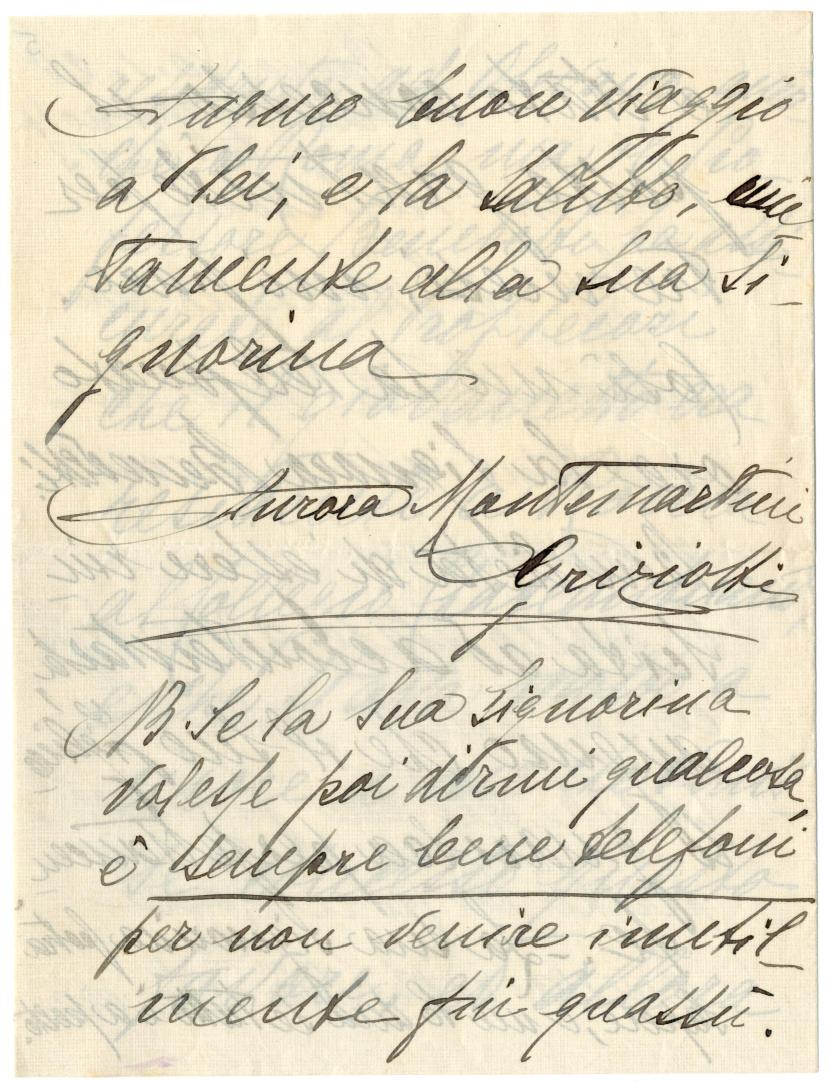 Auguro buon viaggio
a Lei, e la saluto, uni
tamente alla sua Si-
gnorina
Aurora Montemartini
Griziotti
NB. Se la sua Signorina
volesse poi dirmi qualcosa,
è sempre bene telefoni
per non venire inutil-
mente fin quassù.